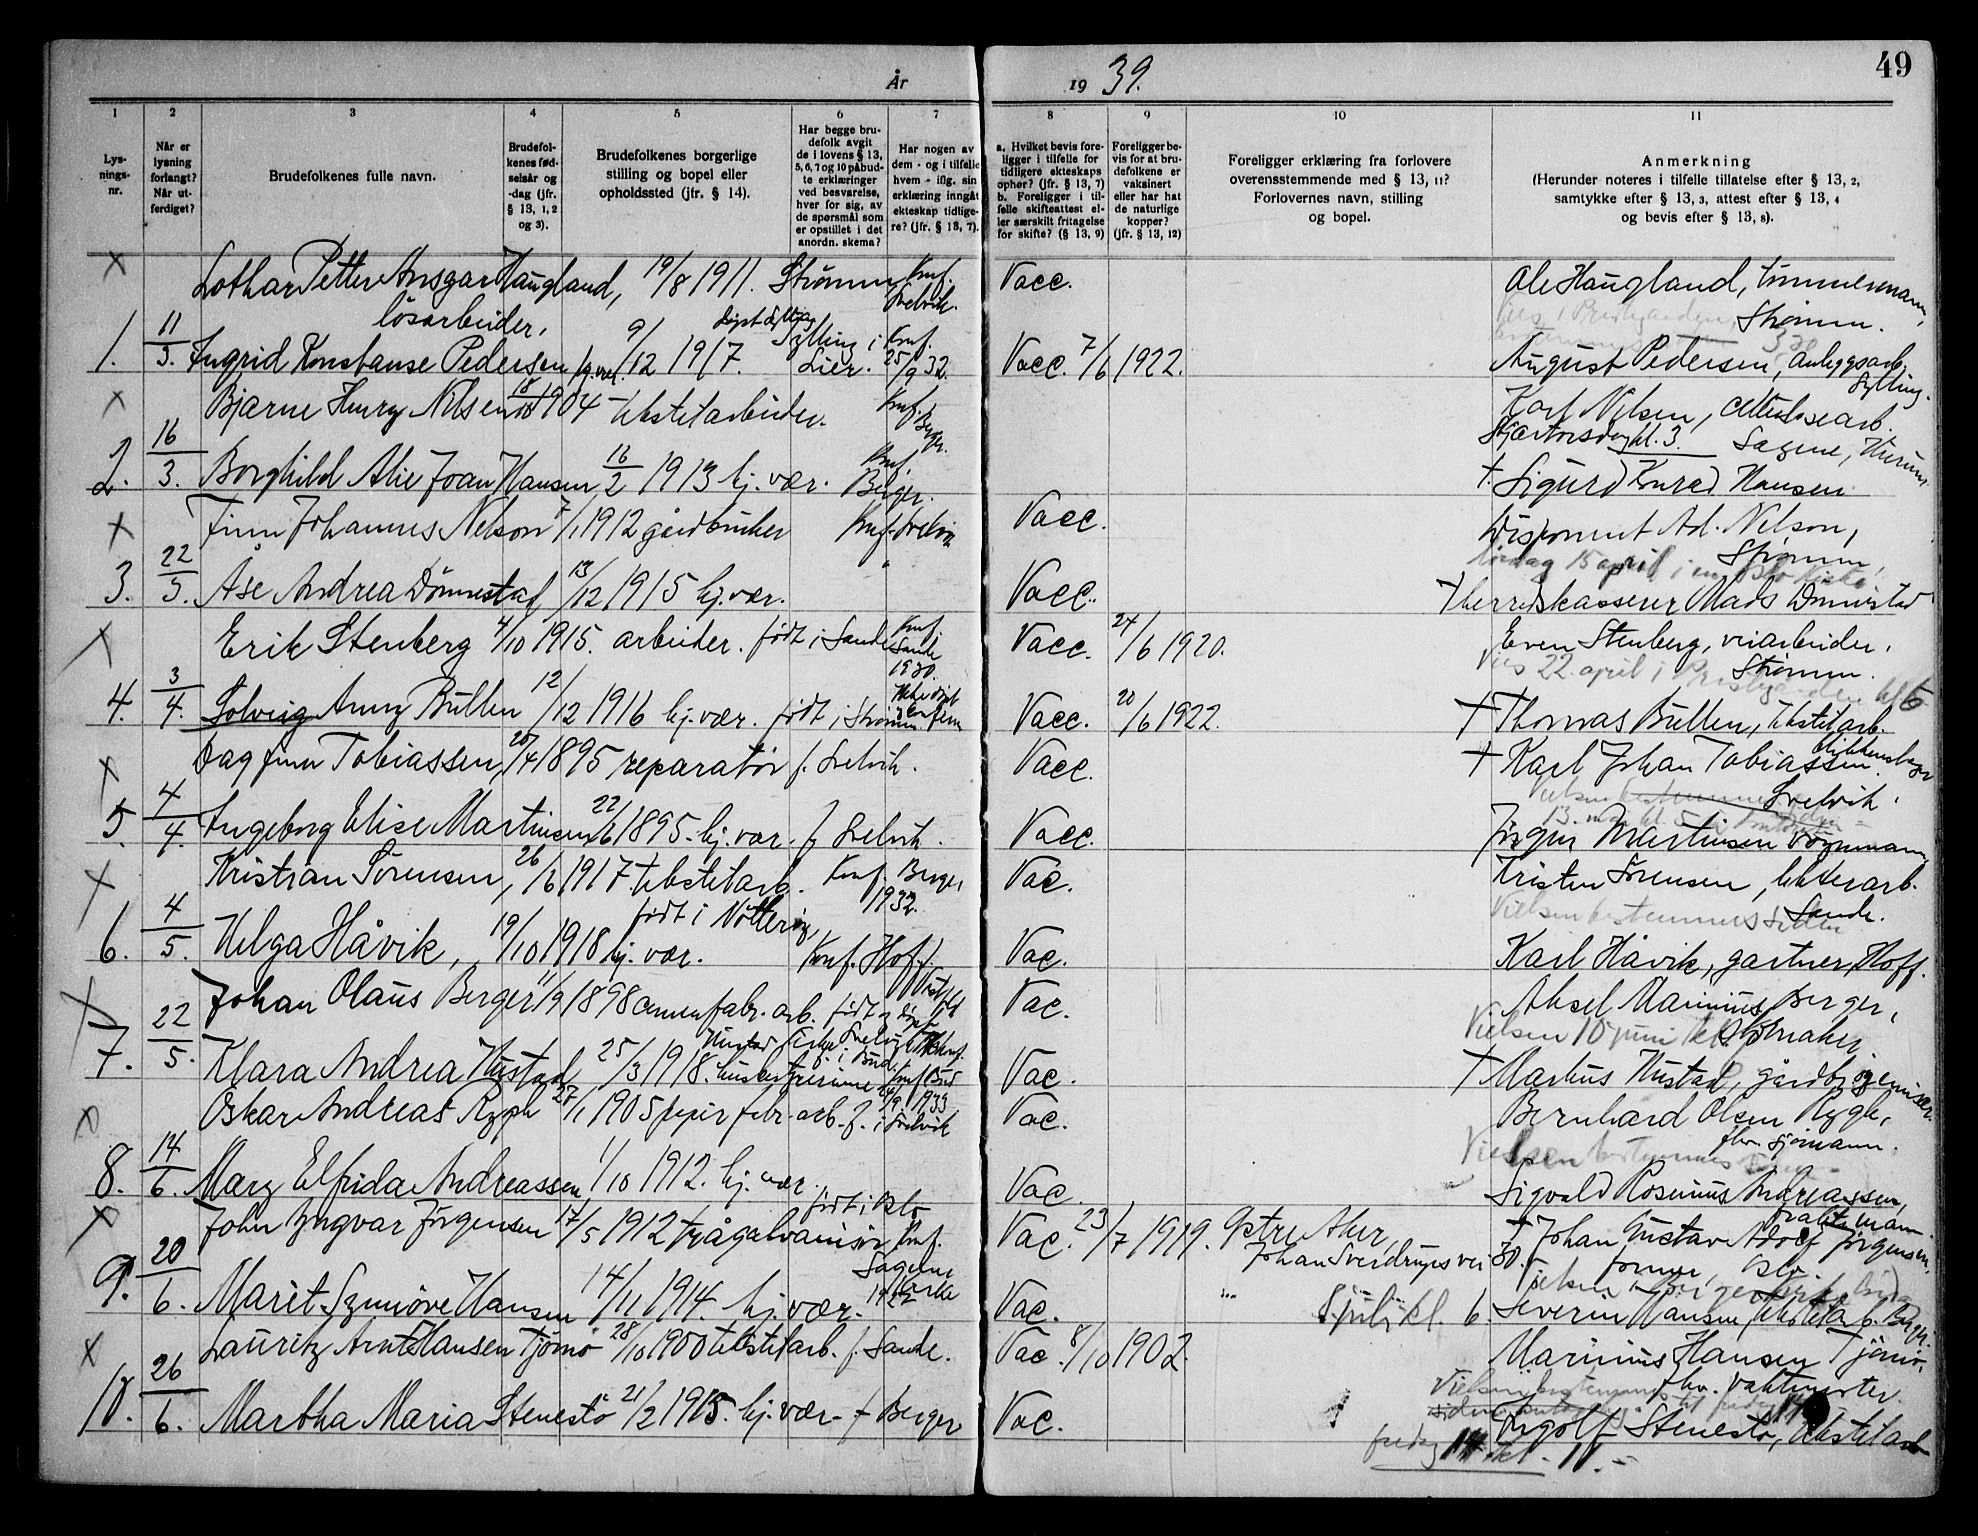 År 1939.
49
1 2 3 4 5 6 7 8 9 10 11
Lysningsnr.
Når er lysning forlangt? Når utferdiget?
Brudefolkenes fulle navn.
Brudefolkenes fødselsår og -dag (jfr. § 13, 1, 2 og 3).
Brudefolkenes borgerlige stilling og bopel eller opholdssted (jfr. § 14).
Har begge brudefolk avgit de i lovens § 13, 5, 6, 7 og 10 påbudte erklæringer ved besvarelse, hver for sig, av de spørsmål som er opstillet i det anordn. skema?
Har nogen av dem - og i tilfelle hvem - iflg. sin erklæring inngått ekteskap tidligere? (jfr. § 13, 7).
a. Hvilket bevis foreligger i tilfelle for tidligere ekteskaps ophør? (jfr. § 13, 7) b. Foreligger i tilfelle skifteattest eller særskilt fritagelse for skifte? (§ 13, 9)
Foreligger bevis for at brudefolkene er vaksinert eller har hat de naturlige kopper? (jfr. § 13, 12)
Foreligger erklæring fra forlovere overensstemmende med § 13, 11? Forlovernes navn, stilling og bopel.
Anmerkning (Herunder noteres i tilfelle tillatelse efter § 13, 2, samtykke efter § 13, 3, attest efter § 13, 4 og bevis efter § 13, 8).
x Lothar Petter Ansgar Haugland, 19/8 1911. Strømm Konf. Svelvik. Vacc. Ole Haugland, tømmermann,
løsarbeider, Strømm.
1. 11/3. Ingrid Konstanse Pedersen 9/12 1917. Sylling i Lier. Konf. 25/9 32. Vacc. 7/6 1922. August Pedersen, anleggsarb. Sylling.
x Bjarne Henry Nilsen 1904 - tekstilarbeider. Konf. Berger. Karl Nilsen, cellulosearb.
kl. 3. Sagene, Hurum
2. 16/3. Borghild Alie Joan Hansen 16/2 1913 hj. vær. Konf. Berger. † Sigurd Konrad Hansen
x Finn Johannes Nelson 7/1 1912 gårdbruker Konf. Svelvik Vacc. Disponent Ad. Nelson, Strømm,
lørdag 15 april i
3. 22/3. Åse Andrea Dønnestad 13/12 1915 hj. vær. " Vacc. † herredskasserer Mads Dønnestad
x Erik Stenberg 4/10 1915. arbeider. født i Sande Konf. Sande 1930. Vacc. 24/6 1920. Even Stenberg, veiarbeider. Strømm.
22 april i Prestegården kl 6
4. 3/4. Solveig Anny Bullen 12/12 1916 hj. vær. født i Strømm Vacc. 20/6 1922. † Thomas Bullen, tekstilarb.
x Dagfinn Tobiassen, 20/4 1895 reparatør f. Svelvik. Vacc. † Karl Johan Tobiassen Svelvik.
5. 4/4. Ingeborg Elise Martinsen 22/6 1895. hj. vær. f Svelvik. Vacc. Jørgen Martinsen
x Kristian Sørensen, 26/6 1917. tekstilarb. Konf. Berger 1932. Vac. Kristen Sørensen, tekstilarb.
født i Nøtterøy Vielsen bestemmes siden Sande.
6. 4/5. Helga Håvik, 19/10 1918 hj. vær. Konf. Hof. Vac. Karl Håvik, gartner, Hoff.
x Johan Olaus Berger 11/9 1898 født Vac. Aksel Marinius Berger, skomaker
Vielsen 10 juni
7. 22/5. Klara Andrea Hustad 25/3 1918. Konf. Bud 1933 Vac. † Markus Hustad, gårdbr.
x Oskar Andreas Rygh 27/1 1905 papirfabr. arb. f. i Svelvik Vac. Bernhard Olsen Rygh, fhv. sjømann.
Vielsen bestemmes
8. 14/6. Mary Elfrida Andreassen 1/10 1912. hj. vær. Vac. Sigvald Rosenius Andreassen,
x John Yngvar Jørgensen 17/5 1912 trågalvanisør født i Oslo Konf. Sagene kirke Vac. 23/7 1919. Østre Aker, Johan Sverdrups vei 30. † Johan Gustav Adolf Jørgensen, former, Oslo.
9. 20/6. Marit Synnøve Hansen 14/11 1914. hj. vær. Vac. " kl. 6. Severin Hansen, tekstilarb. Berger.
x Lauritz Arnt Hansen Tjømø 28/10 1900 tekstilarb. f. Sande. Vac. 8/10 1902. Marinius Hansen Tjømø, fhv. vaktmester.
Vielsen bestemmes siden
10. 26/6. Martha Maria Stenestø 21/2 1915. hj. vær. f Berger Vac. Ingolf Stenestø, tekstilarb
fredag 14